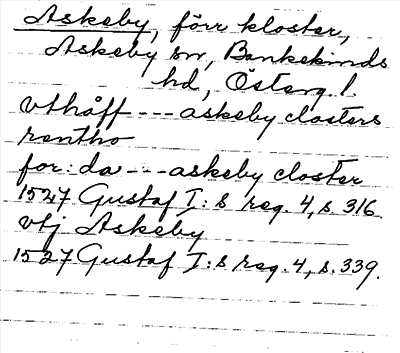 Askeby, förr kloster,
Askeby sn, Bankekinds
hd, Österg. l
vthåff --- askeby closters
rentho
for: da --- askeby closter
1527 Gustaf I:s reg. 4, s. 316
vtj Askeby
1527 Gustaf I:s reg. 4, s. 339.